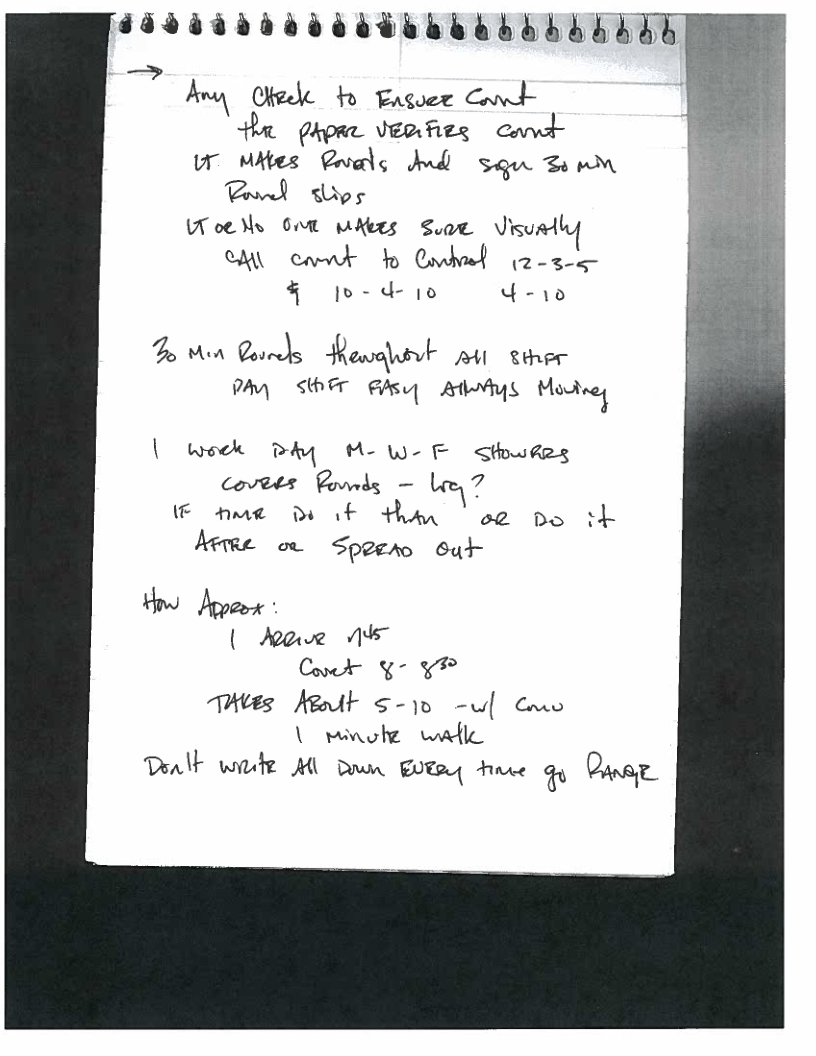 →
Any Check to Ensure Count
the paper verifies count
LT makes Rounds And sign 30 min
Round slips
LT or No One makes sure visually
call count to Control 12-3-5
& 10-4-10 4-10
30 Min Rounds throughout all shift
Day shift easy always moving
I work Day M-W-F showers
covers Rounds - log?
If time do it than or do it
After or spread out
How Approx:
I Arrive 745
Count 8-830
Takes About 5-10 -w/ Conv
1 minute walk
Don't write All Down every time go Range